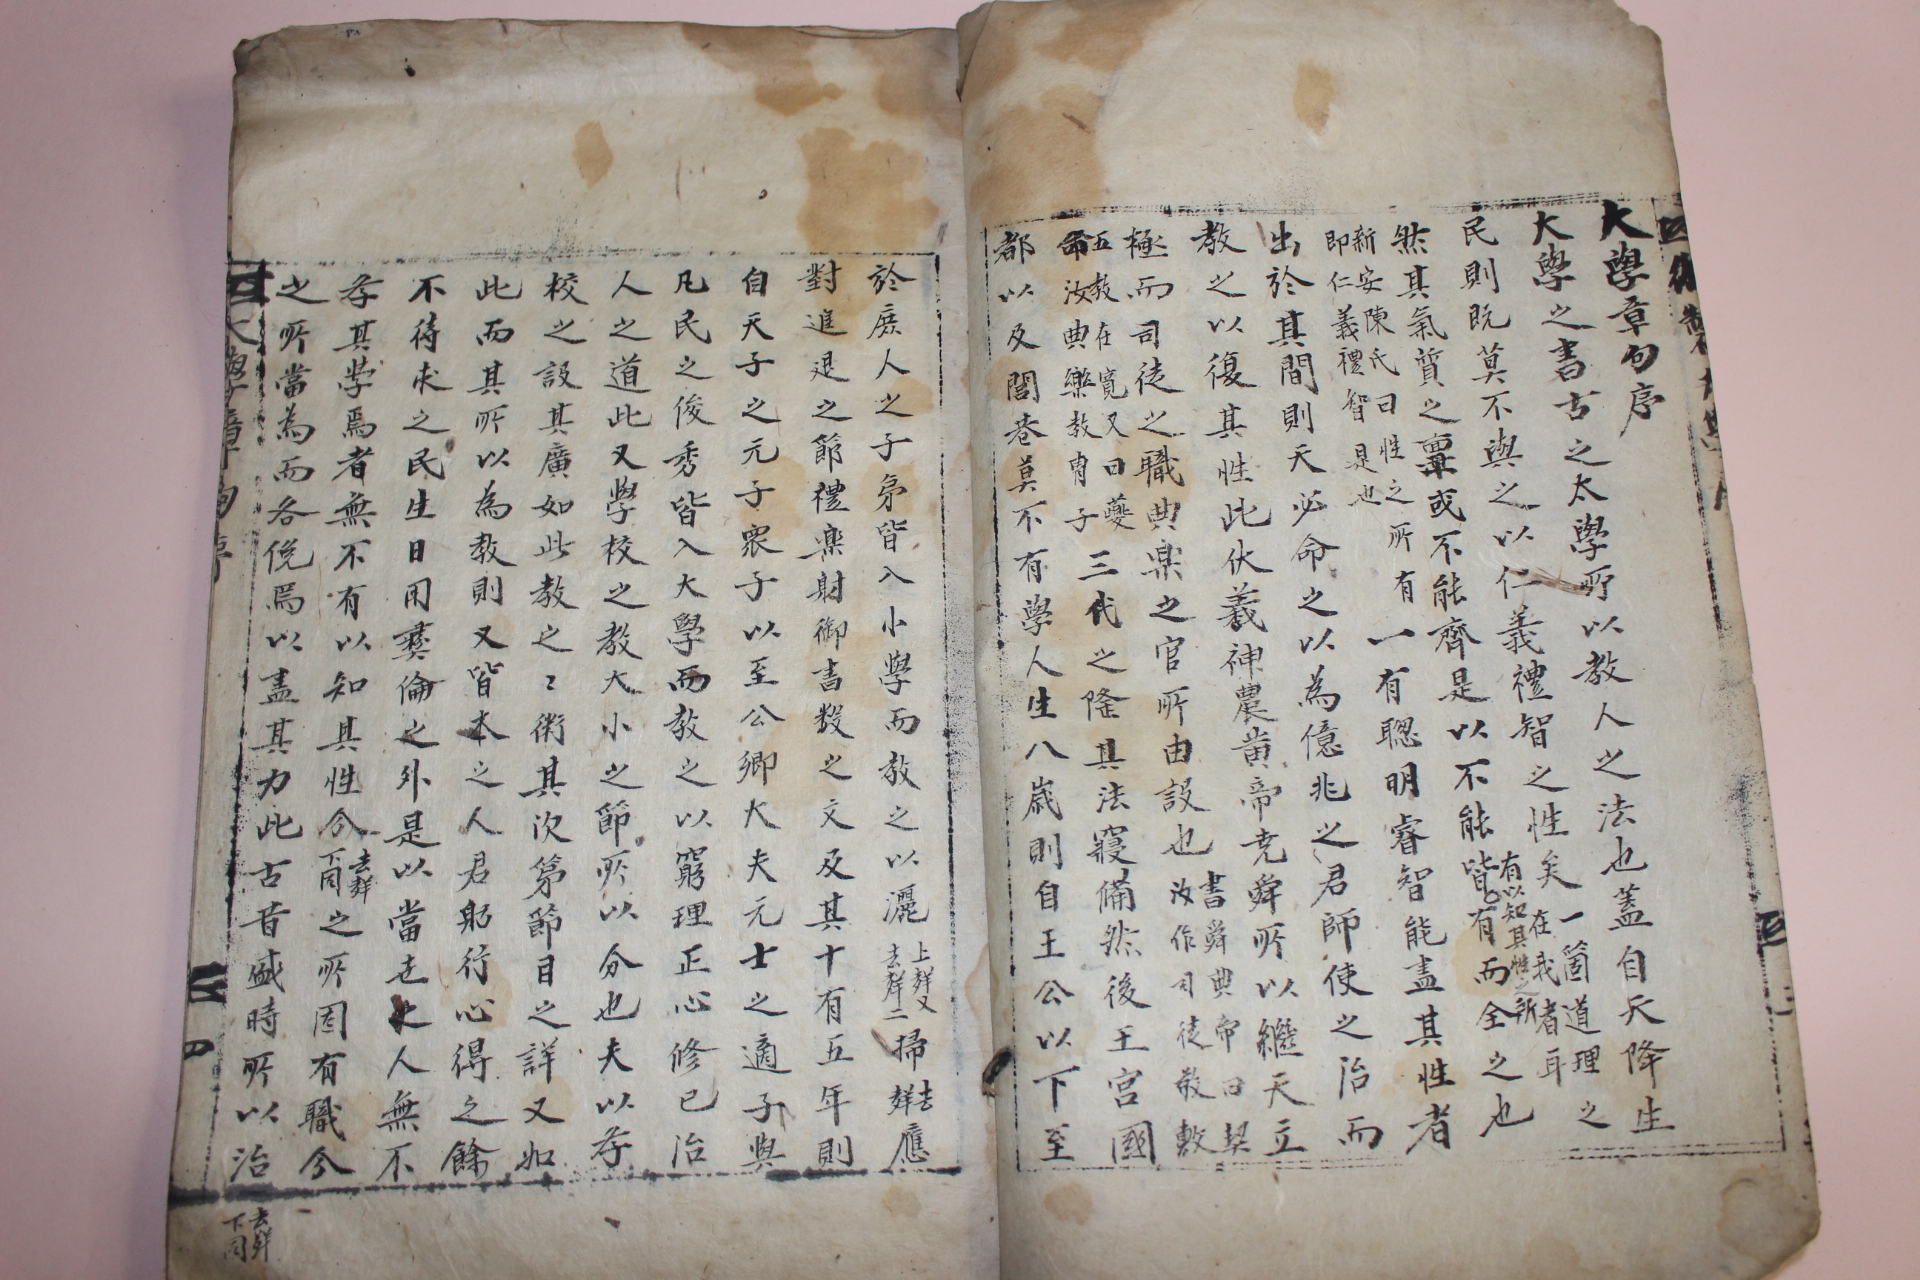 大學章句序
大學之書古之太學所以教人之法也蓋自天降生
民則既莫不與之以仁義禮智之性矣一箇道理之在我者耳
然其氣質之稟或不能齊是以不能皆有以知其性之所有而全之也
新安陳氏曰性之所有即仁義禮智是也一有聰明睿智能盡其性者
出於其間則天必命之以為億兆之君師使之治而
教之以復其性此伏羲神農黃帝尭舜所以繼天立
極而司徒之職典樂之官所由設也書舜典帝曰契汝作司徒敬敷
五教在寬又曰夔命汝典樂教胄子三代之隆其法寢備然後王宮國
都以及閭巷莫不有學人生八歲則自王公以下至
於庶人之子弟皆入小學而敎之以灑上聲又去聲二掃去聲應
對進退之節禮樂射御書數之文及其十有五年則
自天子之元子衆子以至公卿大夫元士之適子與
凡民之俊秀皆入大學而敎之以窮理正心修己治
人之道此又學校之教大小之節所以分也夫以
校之設其廣如此教之〻術其次第節目之詳又如
此而其所以為教則又皆本之人君躬行心得之餘
不待求之民生日用彛倫之外是以當世之人無不
其學焉者無不有以知其性分去聲下同之所固有職分
之所當為而各俛焉以盡其力此古昔盛時所以治
去聲下同
大學章句序